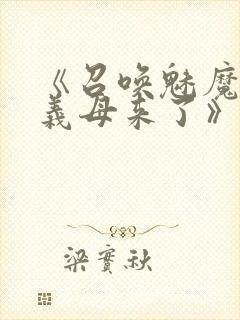 《召唤魅魔
義母来了》
梁實秋